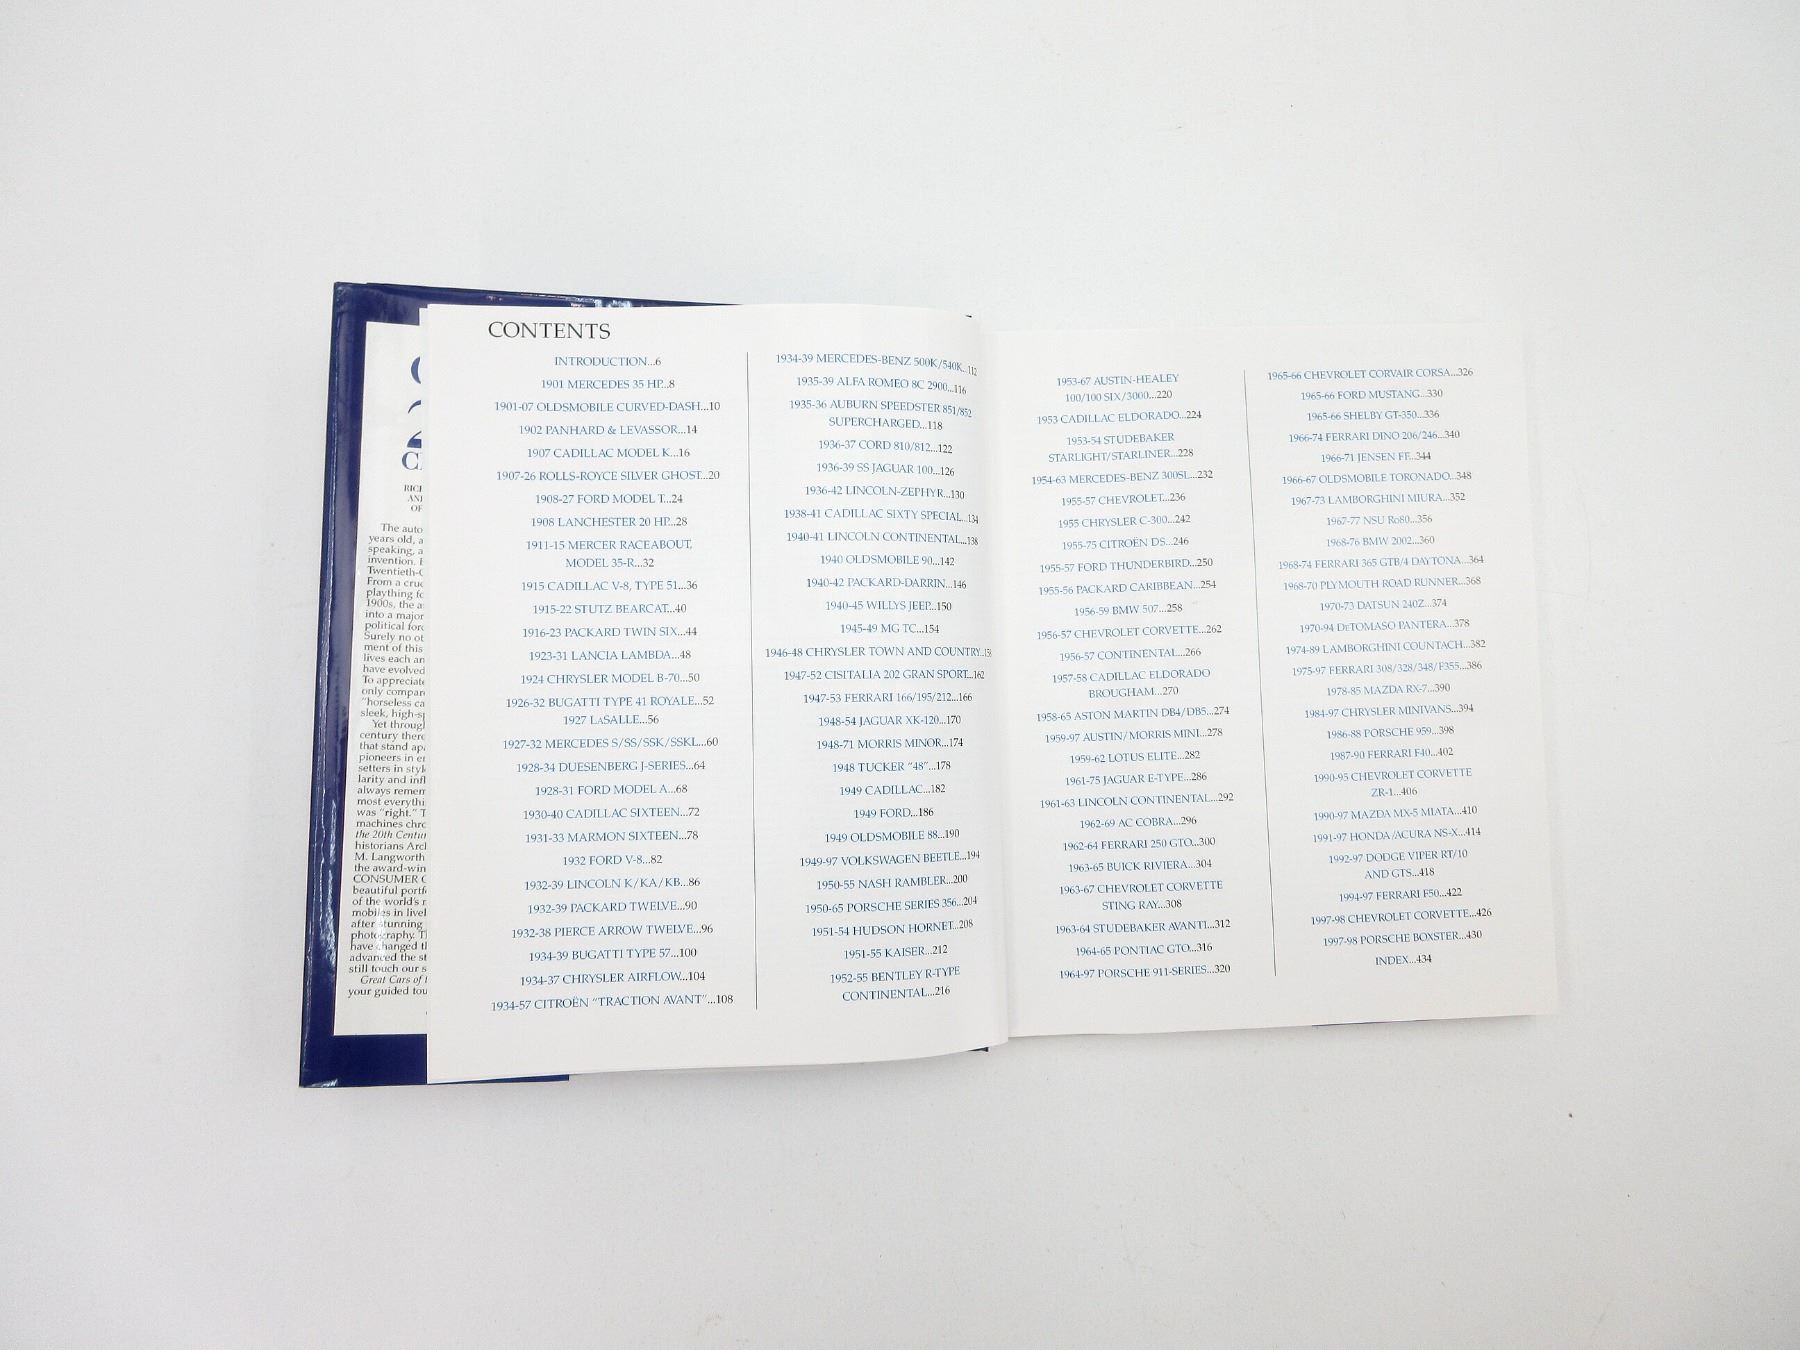 RICH
AN
OF
The auto
years old, a
speaking, a
invention.
Twentieth-C
From a cru
plaything fo
1900s, the a
into a major
political forc
Surely no ot
ment of this
lives each an
have evolved
To appreciate
only compar
"horseless ca
sleek, high-sp
Yet throug
century there
that stand apa
pioneers in en
setters in styl
larity and infl
always remem
most everythi
was "right." T
machines chro
the 20th Centur
historians Arch
M. Langworth
the award-win
CONSUMER G
beautiful portf
of the world's
mobiles in livel
after stunning
photography. T
have changed th
advanced the st
still touch our s
Great Cars of t
your guided tou
CONTENTS
INTRODUCTION...6
1901 MERCEDES 35 HP...8
1901-07 OLDSMOBILE CURVED-DASH...10
1902 PANHARD & LEVASSOR...14
1907 CADILLAC MODEL K...16
1907-26 ROLLS-ROYCE SILVER GHOST...20
1908-27 FORD MODEL T...24
1908 LANCHESTER 20 HP...28
1911-15 MERCER RACEABOUT,
MODEL 35-R...32
1915 CADILLAC V-8, TYPE 51...36
1915-22 STUTZ BEARCAT...40
1916-23 PACKARD TWIN SIX...44
1923-31 LANCIA LAMBDA...48
1924 CHRYSLER MODEL B-70...50
1926-32 BUGATTI TYPE 41 ROYALE...52
1927 LASALLE...56
1927-32 MERCEDES S/SS/SSK/SSKL...60
1928-34 DUESENBERG J-SERIES...64
1928-31 FORD MODEL A...68
1930-40 CADILLAC SIXTEEN...72
1931-33 MARMON SIXTEEN...78
1932 FORD V-8...82
1932-39 LINCOLN K/KA/KB...86
1932-39 PACKARD TWELVE...90
1932-38 PIERCE ARROW TWELVE...96
1934-39 BUGATTI TYPE 57...100
1934-37 CHRYSLER AIRFLOW...104
1934-57 CITROËN "TRACTION AVANT"...108
1934-39 MERCEDES-BENZ 500K/540K...112
1935-39 ALFA ROMEO 8C 2900...116
1935-36 AUBURN SPEEDSTER 851/852
SUPERCHARGED...118
1936-37 CORD 810/812...122
1936-39 SS JAGUAR 100...126
1936-42 LINCOLN-ZEPHYR...130
1938-41 CADILLAC SIXTY SPECIAL...134
1940-41 LINCOLN CONTINENTAL...138
1940 OLDSMOBILE 90...142
1940-42 PACKARD-DARRIN...146
1940-45 WILLYS JEEP...150
1945-49 MG TC...154
1946-48 CHRYSLER TOWN AND COUNTRY...
1947-52 CISITALIA 202 GRAN SPORT...162
1947-53 FERRARI 166/195/212...166
1948-54 JAGUAR XK-120...170
1948-71 MORRIS MINOR...174
1948 TUCKER "48"...178
1949 CADILLAC...182
1949 FORD...186
1949 OLDSMOBILE 88...190
1949-97 VOLKSWAGEN BEETLE...194
1950-55 NASH RAMBLER...200
1950-65 PORSCHE SERIES 356...204
1951-54 HUDSON HORNET...208
1951-55 KAISER...212
1952-55 BENTLEY R-TYPE
CONTINENTAL...216
1953-67 AUSTIN-HEALEY
100/100 SIX/3000...220
1953 CADILLAC ELDORADO...224
1953-54 STUDEBAKER
STARLIGHT/STARLINER...228
1954-63 MERCEDES-BENZ 300SL...232
1955-57 CHEVROLET...236
1955 CHRYSLER C-300...242
1955-75 CITROËN DS...246
1955-57 FORD THUNDERBIRD...250
1955-56 PACKARD CARIBBEAN...254
1956-59 BMW 507...258
1956-57 CHEVROLET CORVETTE...262
1956-57 CONTINENTAL...266
1957-58 CADILLAC ELDORADO
BROUGHAM...270
1958-65 ASTON MARTIN DB4/DB5...274
1959-97 AUSTIN/MORRIS MINI...278
1959-62 LOTUS ELITE...282
1961-75 JAGUAR E-TYPE...286
1961-63 LINCOLN CONTINENTAL...292
1962-69 AC COBRA...296
1962-64 FERRARI 250 GTO...300
1963-65 BUICK RIVIERA...304
1963-67 CHEVROLET CORVETTE
STING RAY...308
1963-64 STUDEBAKER AVANTI...312
1964-65 PONTIAC GTO...316
1964-97 PORSCHE 911-SERIES...320
1965-66 CHEVROLET CORVAIR CORSA...326
1965-66 FORD MUSTANG...330
1965-66 SHELBY GT-350...336
1966-74 FERRARI DINO 206/246...340
1966-71 JENSEN FF...344
1966-67 OLDSMOBILE TORONADO...348
1967-73 LAMBORGHINI MIURA...352
1967-77 NSU Ro80...356
1968-76 BMW 2002...360
1968-74 FERRARI 365 GTB/4 DAYTONA...364
1968-70 PLYMOUTH ROAD RUNNER...368
1970-73 DATSUN 240Z...374
1970-94 DETOMASO PANTERA...378
1974-89 LAMBORGHINI COUNTACH...382
1975-97 FERRARI 308/328/348/F355...386
1978-85 MAZDA RX-7...390
1984-97 CHRYSLER MINIVANS...394
1986-88 PORSCHE 959...398
1987-90 FERRARI F40...402
1990-95 CHEVROLET CORVETTE
ZR-1...406
1990-97 MAZDA MX-5 MIATA...410
1991-97 HONDA/ACURA NS-X...414
1992-97 DODGE VIPER RT/10
AND GTS...418
1994-97 FERRARI F50...422
1997-98 CHEVROLET CORVETTE...426
1997-98 PORSCHE BOXSTER...430
INDEX...434